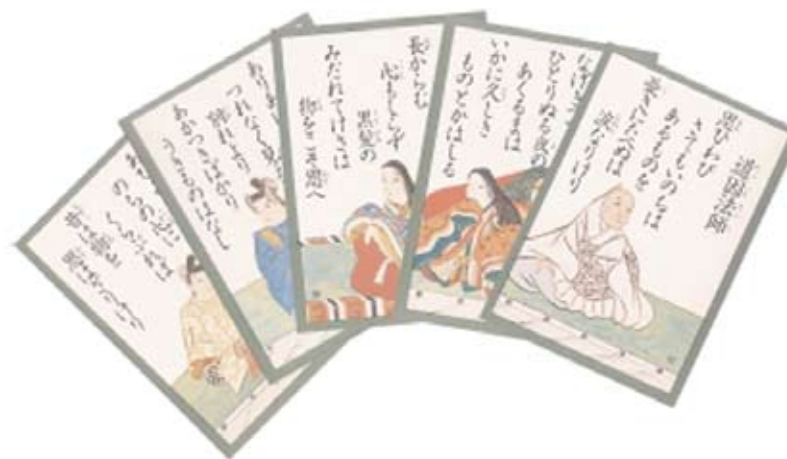 道因法師
思ひわび
さてもいのちは
あるものを
憂きにたへぬは
涙なりけり
なげきつつ
ひとりぬる夜の
あくるまは
いかに久しき
ものとかはしる
長からむ
心もしらず
黒髪の
みだれてけさは
物をこそ思へ
ありあけ
つれなく見
別れより
あかつきばかり
うきものはなし
のちの心に
くらぶれば
昔は物を
思はざりけり